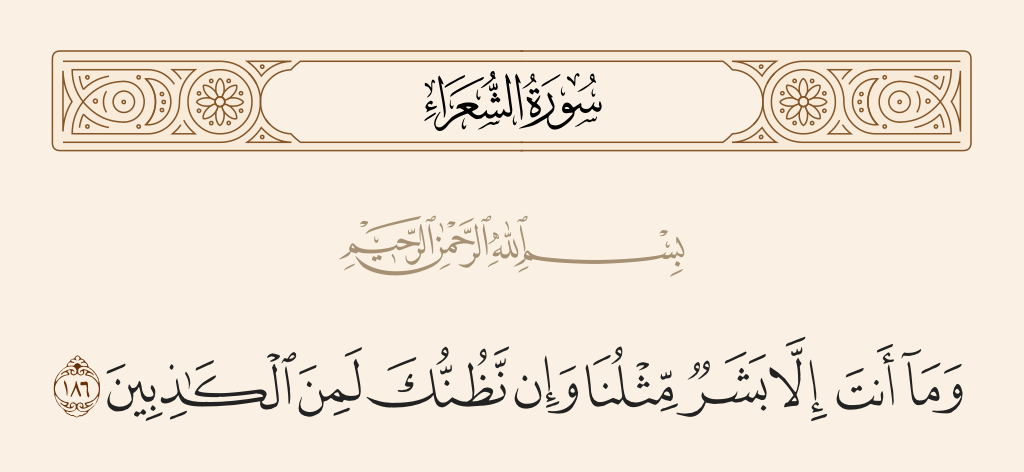 سُورَةُ الشُّعَرَاءِ
بِسْمِ ٱللَّهِ ٱلرَّحْمَٰنِ ٱلرَّحِيمِ
وَمَآ أَنتَ إِلَّا بَشَرٌ مِّثْلُنَا وَإِن نَّظُنُّكَ لَمِنَ ٱلْكَـٰذِبِينَ ١٨٦